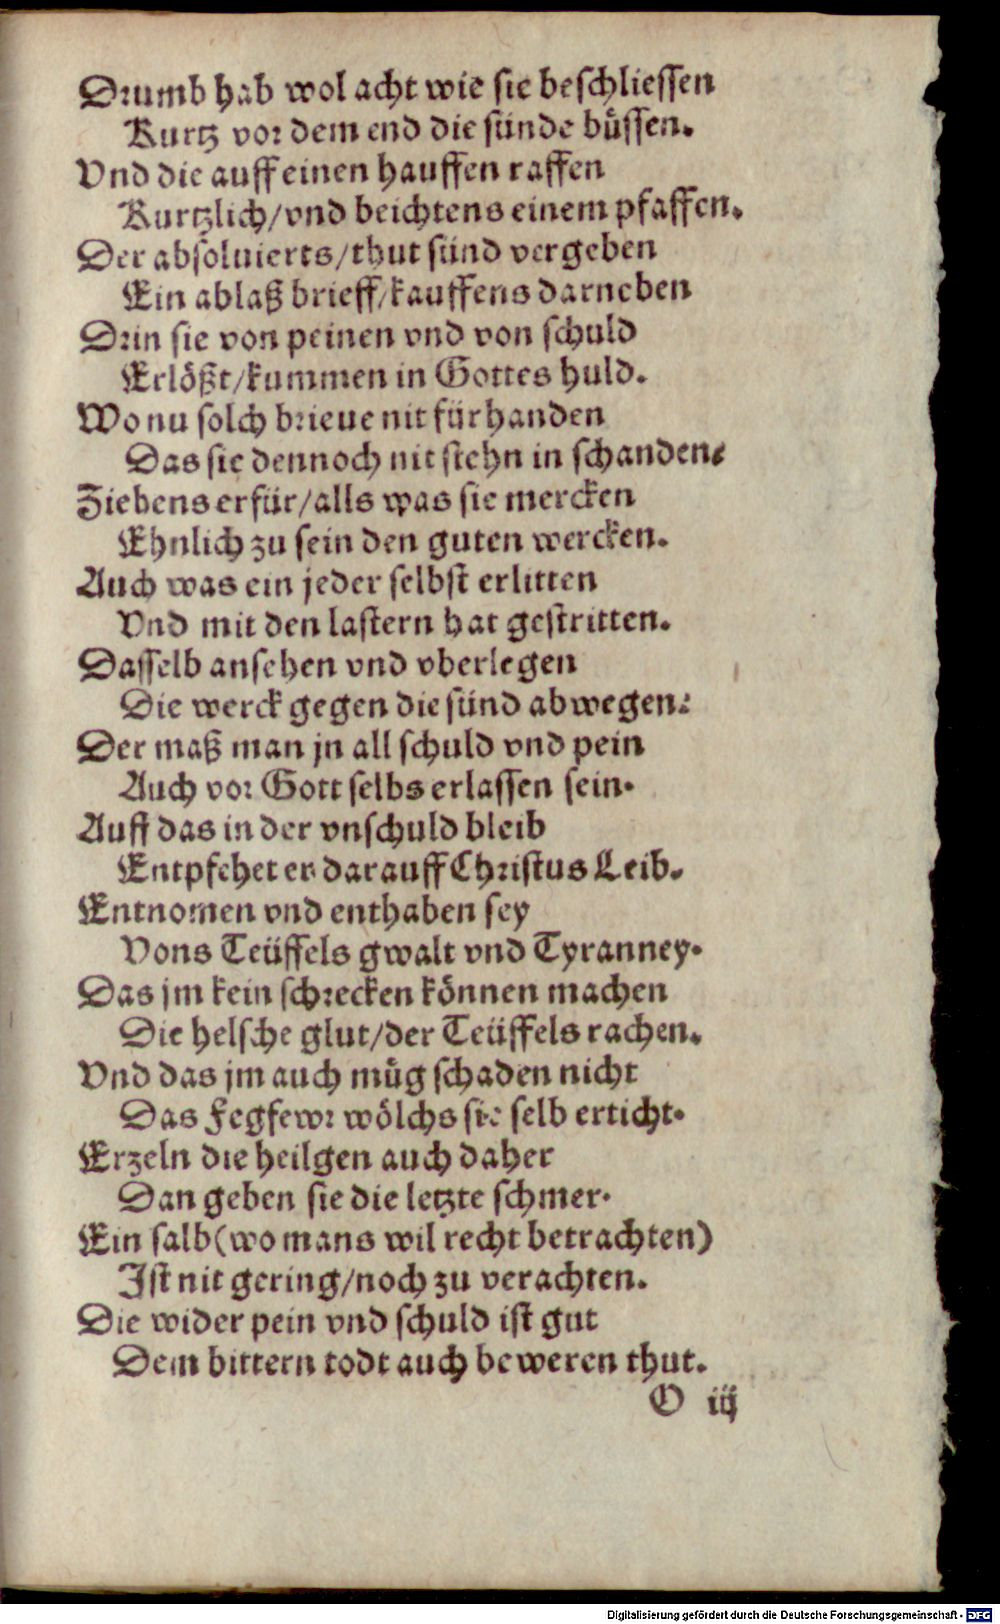 Drumb hab wol acht wie sie beschliessen
Kurtz vor dem end die sünde büssen.
Vnd die auff einen hauffen raffen
Kurtzlich/vnd beichtens einem pfaffen.
Der absoluierts/thut sünd vergeben
Ein ablaß brieff/kauffens darneben
Drin sie von peinen vnd von schuld
Erlößt/kummen in Gottes huld.
Wo nu solch brieue nit für handen
Das sie dennoch nit stehn in schanden:
Ziehens erfür/alls was sie mercken
Ehnlich zu sein den guten wercken.
Auch was ein jeder selbst erlitten
Vnd mit den lastern hat gestritten.
Dasselb ansehen vnd vberlegen
Die werck gegen die sünd abwegen:
Der maß man jn all schuld vnd pein
Auch vor Gott selbs erlassen sein.
Auff das in der vnschuld bleib
Entpfehet er darauff Christus Leib.
Entnomen vnd enthaben sey
Vons Teüffels gwalt vnd Tyranney.
Das jm kein schrecken können machen
Die helsche glut/der Teüffels rachen.
Vnd das jm auch müg schaden nicht
Das Fegfewr wölchs sie selb erticht.
Erzeln die heilgen auch daher
Dan geben sie die letzte schmer.
Ein salb (wo mans wil recht betrachten)
Ist nit gering/noch zu verachten.
Die wider pein vnd schuld ist gut
Dem bittern todt auch beweren thut.
O iij
Digitalisierung gefördert durch die Deutsche Forschungsgemeinschaft - DFG